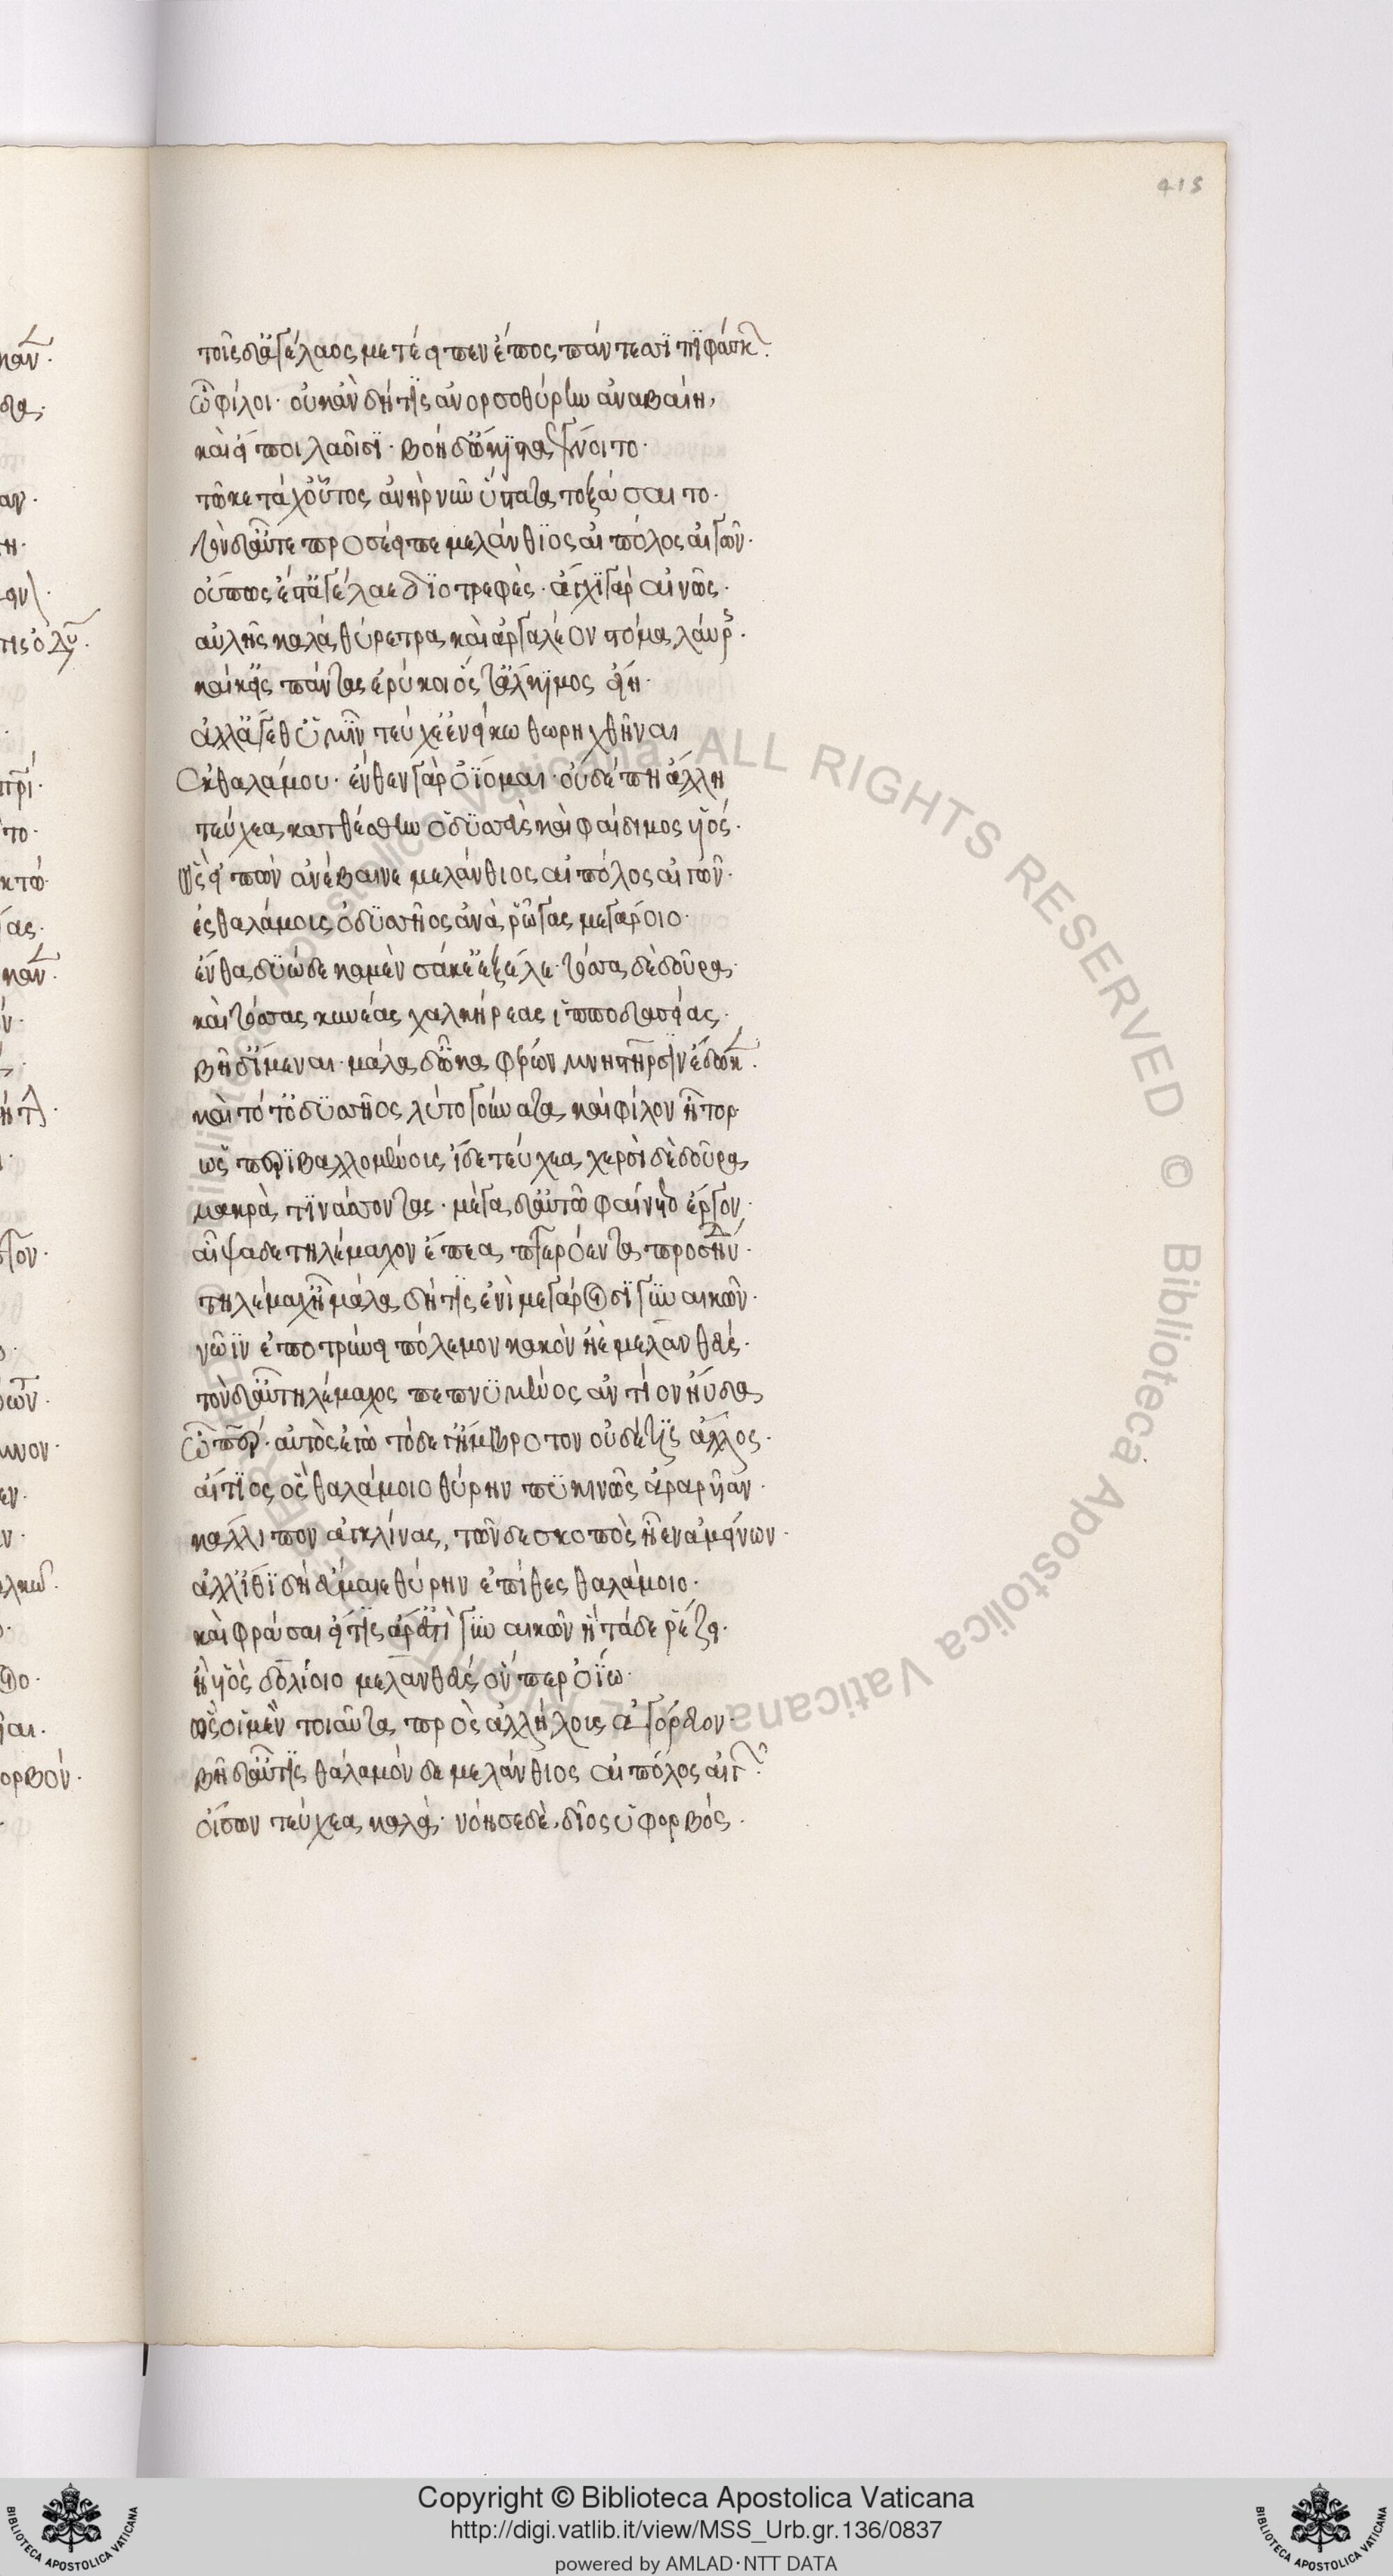 415
τοῖς δ' ἀγέλαος μετέειπεν ἔπος πάντεσσι πιφάσκ
ὦ φίλοι· οὐκ ἂν δή τις ἀν' ὀρσοθύρην ἀναβαίη,
καὶ εἴποι λαοῖσι· βοὴ δ' ὤκιστα γένοιτο·
τῶ κε τάχ' οὗτος ἀνὴρ νῦν ὕστατα τοξάσσαιτο·
τὸν δ' αὖτε προσέειπε μελάνθιος αἰπόλος αἰγῶν·
οὔπως ἔστ' ἀγέλαε διοτρεφές· ἄγχι γὰρ αἰνῶς·
αὐλῆς καλὰ θύρετρα καὶ ἀργαλέον στόμα λαύρ
καί κ' εἷς πάντας ἐρύκοι ὅς τ' ἄλκιμος εἴη·
ἀλλ' ἄγεθ' ὑμῖν τεύχε' ἐνείκω θωρηχθῆναι
ἐκ θαλάμου· ἔνθεν γὰρ ὀΐομαι· οὐδέ πη ἄλλη
τεύχεα κατθέσθην ὀδυσσεὺς καὶ φαίδιμος υἱός·
ὣς εἰπὼν ἀνέβαινε μελάνθιος αἰπόλος αἰγῶν·
ἐς θαλάμοις ὀδυσσῆος ἀνὰ ῥῶγας μεγάροιο·
ἔνθα δυώδεκα μὲν σάκε' ἔξελε· τόσσα δὲ δοῦρα·
καὶ τόσσας κυνέας χαλκήρεας ἱπποδασείας·
βῆ δ' ἴμεναι· μάλα δ' ὦκα φέρων μνηστῆρσιν ἔδωκ
καὶ τότ' ὀδυσσῆος λύτο γούνατα καὶ φίλον ἦτορ·
ὡς περιβαλλομένοις ἴδε τεύχεα χερσὶ δὲ δοῦρα
μακρὰ τινάσσοντας· μέγα δ' αὐτῶ φαίνετο ἔργον·
αἶψα δὲ τηλέμαχον ἔπεα πτερόεντα προσην·
τηλέμαχ' ἦ μάλα δή τις ἐνὶ μεγάροισι γυναικῶν·
νῶιν ἐποτρύνει πόλεμον κακὸν ἠὲ μελανθεύς·
τὸν δ' αὖ τηλέμαχος πεπνυμένος ἀντίον ηὔδα
ὦ πάτερ· αὐτὸς ἐγὼ τόδε γ' ἤμβροτον οὐδέ τις ἄλλος·
αἴτιος ὃς θαλάμοιο θύρην πυκινῶς ἀραρυῖαν·
κάλλιπον ἀγκλίνας, τῶν δὲ σκοπὸς ἦεν ἀμείνων·
ἀλλ' ἴθι δῖ' εὔμαιε θύρην ἐπίθες θαλάμοιο·
καὶ φράσαι εἴ τις ἄρ' ἐστὶ γυναικῶν ἣ τάδε ῥέζει·
ἢ υἱὸς δολίοιο μελανθεύς ὅν περ ὀΐω·
ὣς οἱ μὲν τοιαῦτα πρὸς ἀλλήλοις ἀγόρευον·
βῆ δ' αὖτις θάλαμόνδε μελάνθιος αἰπόλος αἰγ
οἴσων τεύχεα καλά· νόησε δὲ δῖος ὑφορβός·
Biblioteca Apostolica Vaticana ALL RIGHTS RESERVED © Biblioteca Apostolica Vaticana
Copyright © Biblioteca Apostolica Vaticana
http://digi.vatlib.it/view/MSS_Urb.gr.136/0837
powered by AMLAD·NTT DATA
BIBLIOTECA APOSTOLICA VATICANA
BIBLIOTECA APOSTOLICA VATICANA